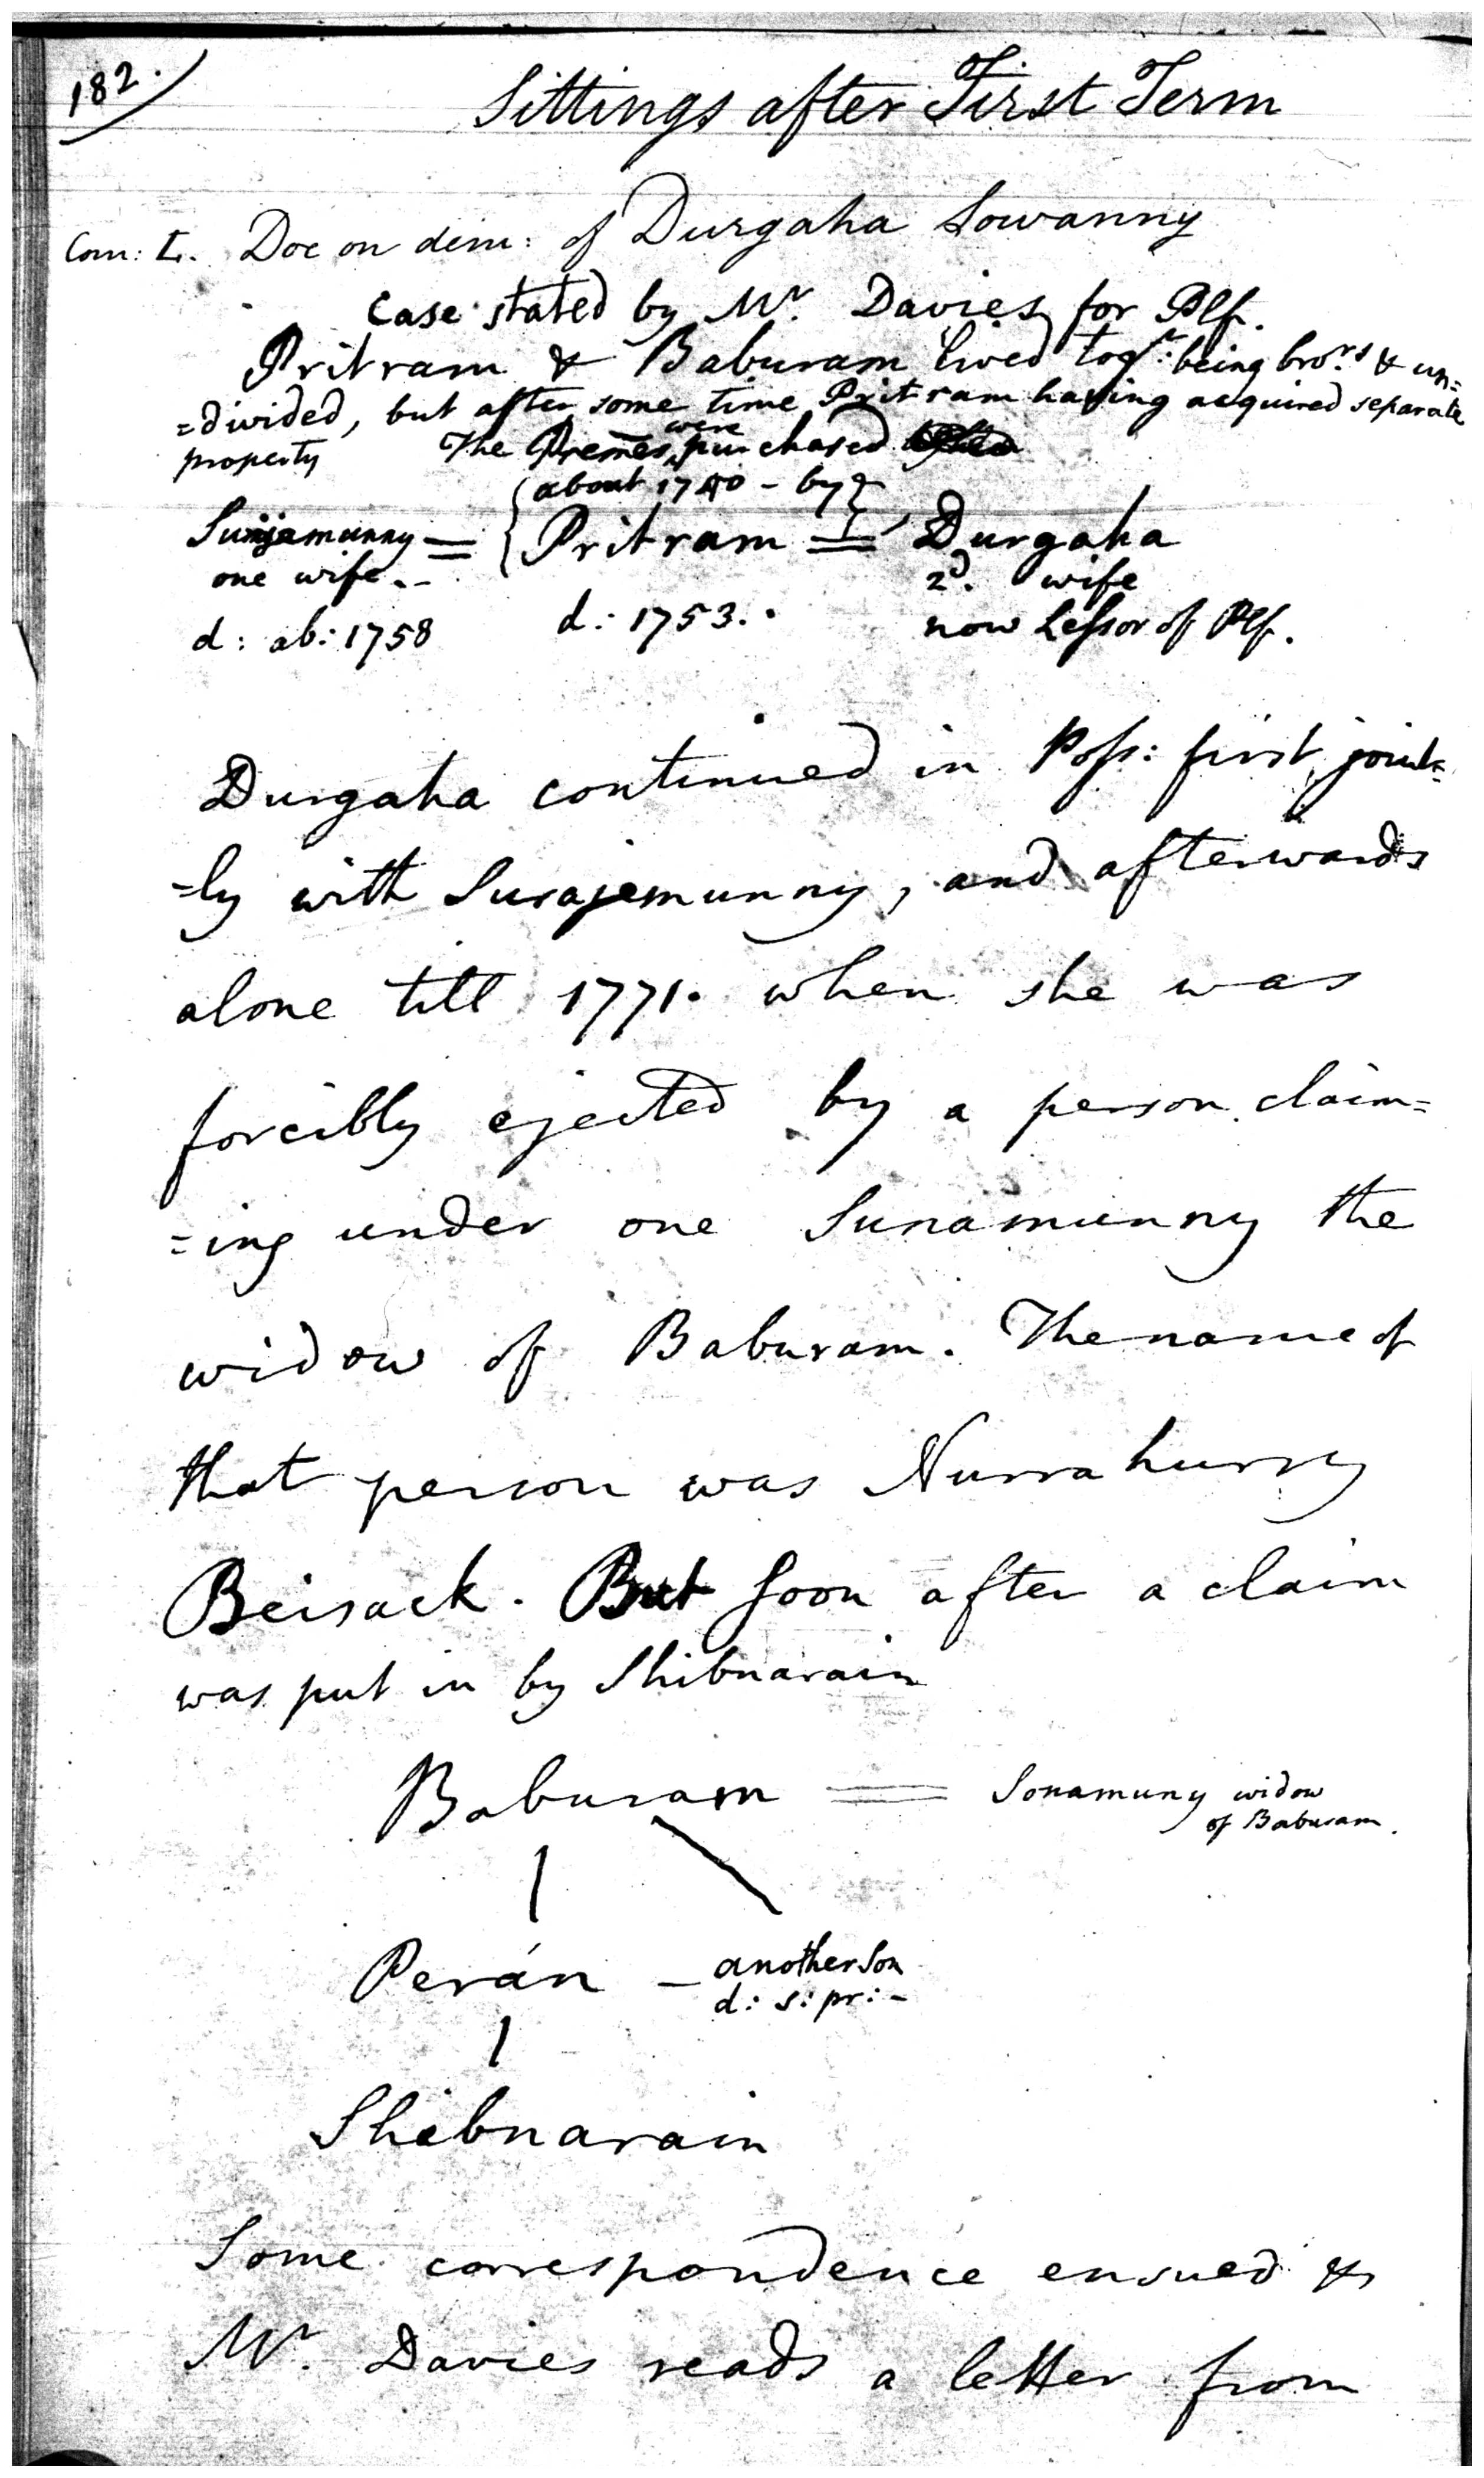 182.
Sittings after First Term
Com: L. Doe on dem: of Durgaha Sowanny
Case stated by Mr. Davies for Plf.
Pritram & Baburam lived togr: being bro.rs & un=
=divided, but after some time Pritram having acquired separate
property The Premes were purchased
about 1740 - by
Surajemunny = Pritram = Durgaha
one wife. - 2d. wife
d: ab: 1758 d: 1753. now Lessor of Plf.
Durgaha continued in Poss: first joint=
=ly with Surajemunny, and afterwards
alone till 1771. when she was
forcibly ejected by a person claim=
=ing under one Sunamunny the
widow of Baburam. The name of
that person was Nurrahurry
Beisack. But soon after a claim
was put in by Shibnarain
Baburam = Sonamuny widow
of Baburam.
Perán - another Son
d: s: pr: -
Shibnarain
Some correspondence ensued &
Mr. Davies reads a letter from